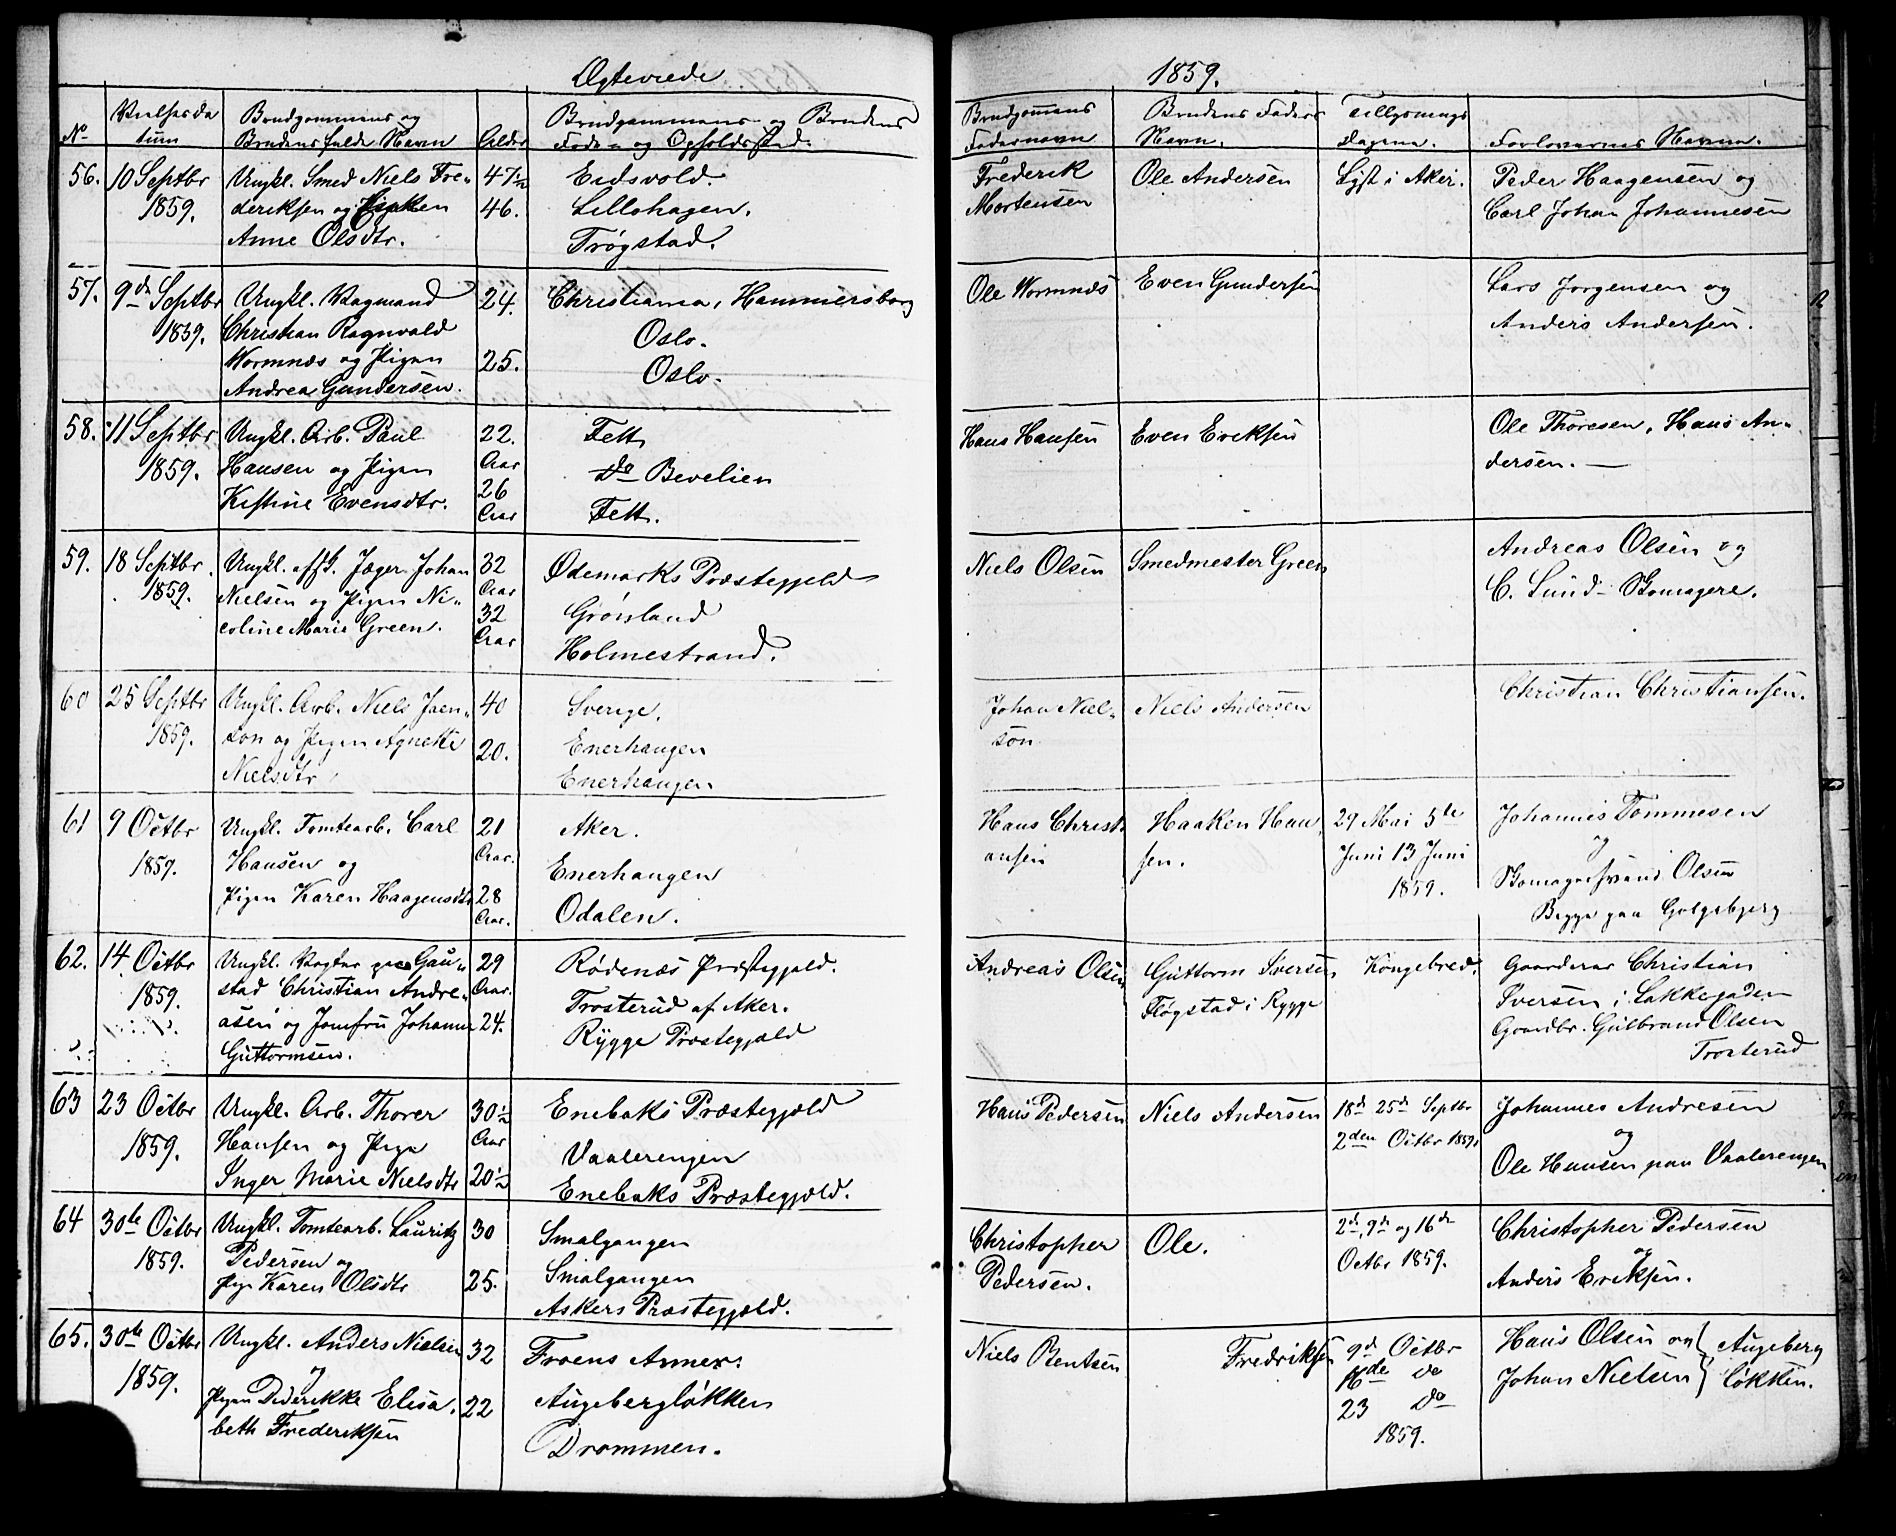 Ægteviede
1859.
No
Vielsesda
tum
Brudgommens og
Brudens fulde Navn
Alder
Brudgommens og Brudens
Føde- og Opholdssted.
Brudgomens
Fadernavn
Brudens Faders
Navn.
Tillysnings
dagene.
Forlovernes Navne.
56.
10 Septbr
1859.
Ungkl. Smed Niels Fre-
deriksen og
Anne Olsdtr.
47½
46.
Eidsvold.
Lillohagen.
Trøgstad.
Frederik
Mortensen
Ole Andersen
Lyst i Aker.
Peder Haagensen og
Carl Johan Johannesen
57.
9de Septbr
1859.
Ungkl. Vognmand
Christian Ragnvald
Wormnæs og Pigen
Andrea Gundersen.
24.
25.
Christiania, Hammersborg
Oslo.
Oslo.
Ole Wormnæs
Even Gundersen
Lars Jørgensen og
Anders Andersen.
58.
11 Septbr
1859.
Ungkl. Arb. Paul
Hansen og Pigen
Kistine Evensdtr.
22.
Aar
26
Aar
Fett
Do Bevelien
Fett.
Hans Hansen
Even Eriksen
Ole Thoresen, Hans An-
dersen. —
59.
18 Septbr.
1859.
Ungkl. afsk. Jæger Johan
Nielsen og Pigen Ni-
coline Marie Green.
32
Aar
32
Aar
Ødemarks Præstegjeld
Grønland
Holmestrand.
Niels Olsen
Smedmester Green
Andreas Olsen og
C. Lund Skomagere.
60
25 Septbr
1859.
Ungkl. Arb. Niels Joen-
son og Pigen Agnethe
Nielsdtr
40
20.
Sverige.
Enerhaugen
Enerhaugen
Johan Niel-
son
Niels Andersen
Christian Christiansen.
61
9 Octbr
1859.
Ungkl. Tomtearb. Carl
Hansen og
Pigen Karen Haagensdtr
21
Aar.
28
Aar.
Aker.
Enerhaugen
Odalen.
Hans Christi
ansen
Haaken Han
sen.
29 Mai 5te
Juni 13 Juni
1859.
Johannes Tommesen
og
Skomagersvend Olsen
Begge paa Galgebjerg
62.
14 Octbr
1859.
Ungkl. Vogter paa Gau-
stad Christian Andre-
asen og Jomfru Johanne
Guttormsen.
29
Aar.
24.
Rødenæs Præstegjæld.
Trosterud af Aker.
Rygge Præstegjæld
Andreas Olsen
Guttorm Iversen
Fløgstad i Rygge
Kongebrev.
Gaardeier Christian
Iversen i Lakkegaden
Gaardbr. Gulbrand Olsen
Trosterud
63
23 Octbr
1859.
Ungkl. Arb. Thorer
Hansen og Pige
Inger Marie Nielsdtr
30½
Aar
20½
Enebaks Præstegjæld
Vaalerengen
Enebaks Præstegjæld.
Hans Pedersen
Niels Andersen
18de 25de Septbr
2den Octbr 1859.
Johannes Andresen
og
Ole Hansen paa Vaalerengen
64
30te Octbr
1859.
Ungkl. Tomtearb. Lauritz
Pedersen og
Pige Karen Olsdtr
30
25.
Smalgangen
Smalgangen
Askers Præstegjæld.
Christopher
Pedersen.
Ole.
2de, 9de og 16de
Octbr 1859.
Christopher Pedersen
og
Anders Eriksen.
65.
30te Octbr
1859.
Ungkl. Anders Nielsen
og
Pigen Diderikke Elisa-
beth Frederiksen
32
22
Froens Annex.
Augebergløkken
Drammen.
Niels Bentsen
Fredriksen
9de Octbr
16de do
23 do
1859.
Hans Olsen og
Johan Nielsen
Augeberg
løkken.